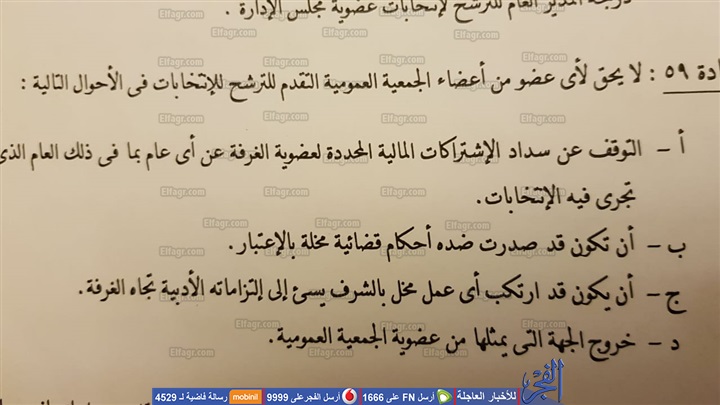 درجة المدير العام للترشح لإنتخابات عضوية مجلس الإدارة .
ادة ٥٩ : لا يحق لأى عضو من أعضاء الجمعية العمومية التقدم للترشح للإنتخابات فى الأحوال التالية :
أ – التوقف عن سداد الإشتراكات المالية المحددة لعضوية الغرفة عن أى عام بما فى ذلك العام الذى
تجرى فيه الإنتخابات.
ب – أن تكون قد صدرت ضده أحكام قضائية مخلة بالإعتبار.
ج – أن يكون قد ارتكب أى عمل مخل بالشرف يسئ إلى إلتزاماته الأدبية تجاه الغرفة.
د – خروج الجهة التى يمثلها من عضوية الجمعية العمومية.
الفجر للأخبار العاجلة أرسل FN على 1666 أرسل الفجر على 9999 mobinil رسالة فاضية لـ 4529
Elfagr.com